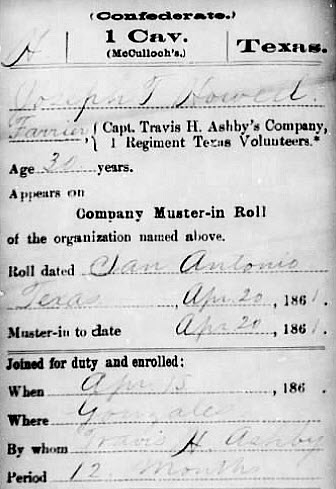 (Confederate.)
H
1 Cav.
(McCulloch's.)
Texas.
Joseph T Howell
Farrier, { Capt. Travis H. Ashby's Company,
1 Regiment Texas Volunteers.*
Age 30 years.
Appears on
Company Muster-in Roll
of the organization named above.
Roll dated San Antonio
Texas, Apr 20, 1861.
Muster-in to date Apr 20, 1861.
Joined for duty and enrolled:
When Apr 15, 186
Where Gonzales
By whom Travis H Ashby
Period 12 Months